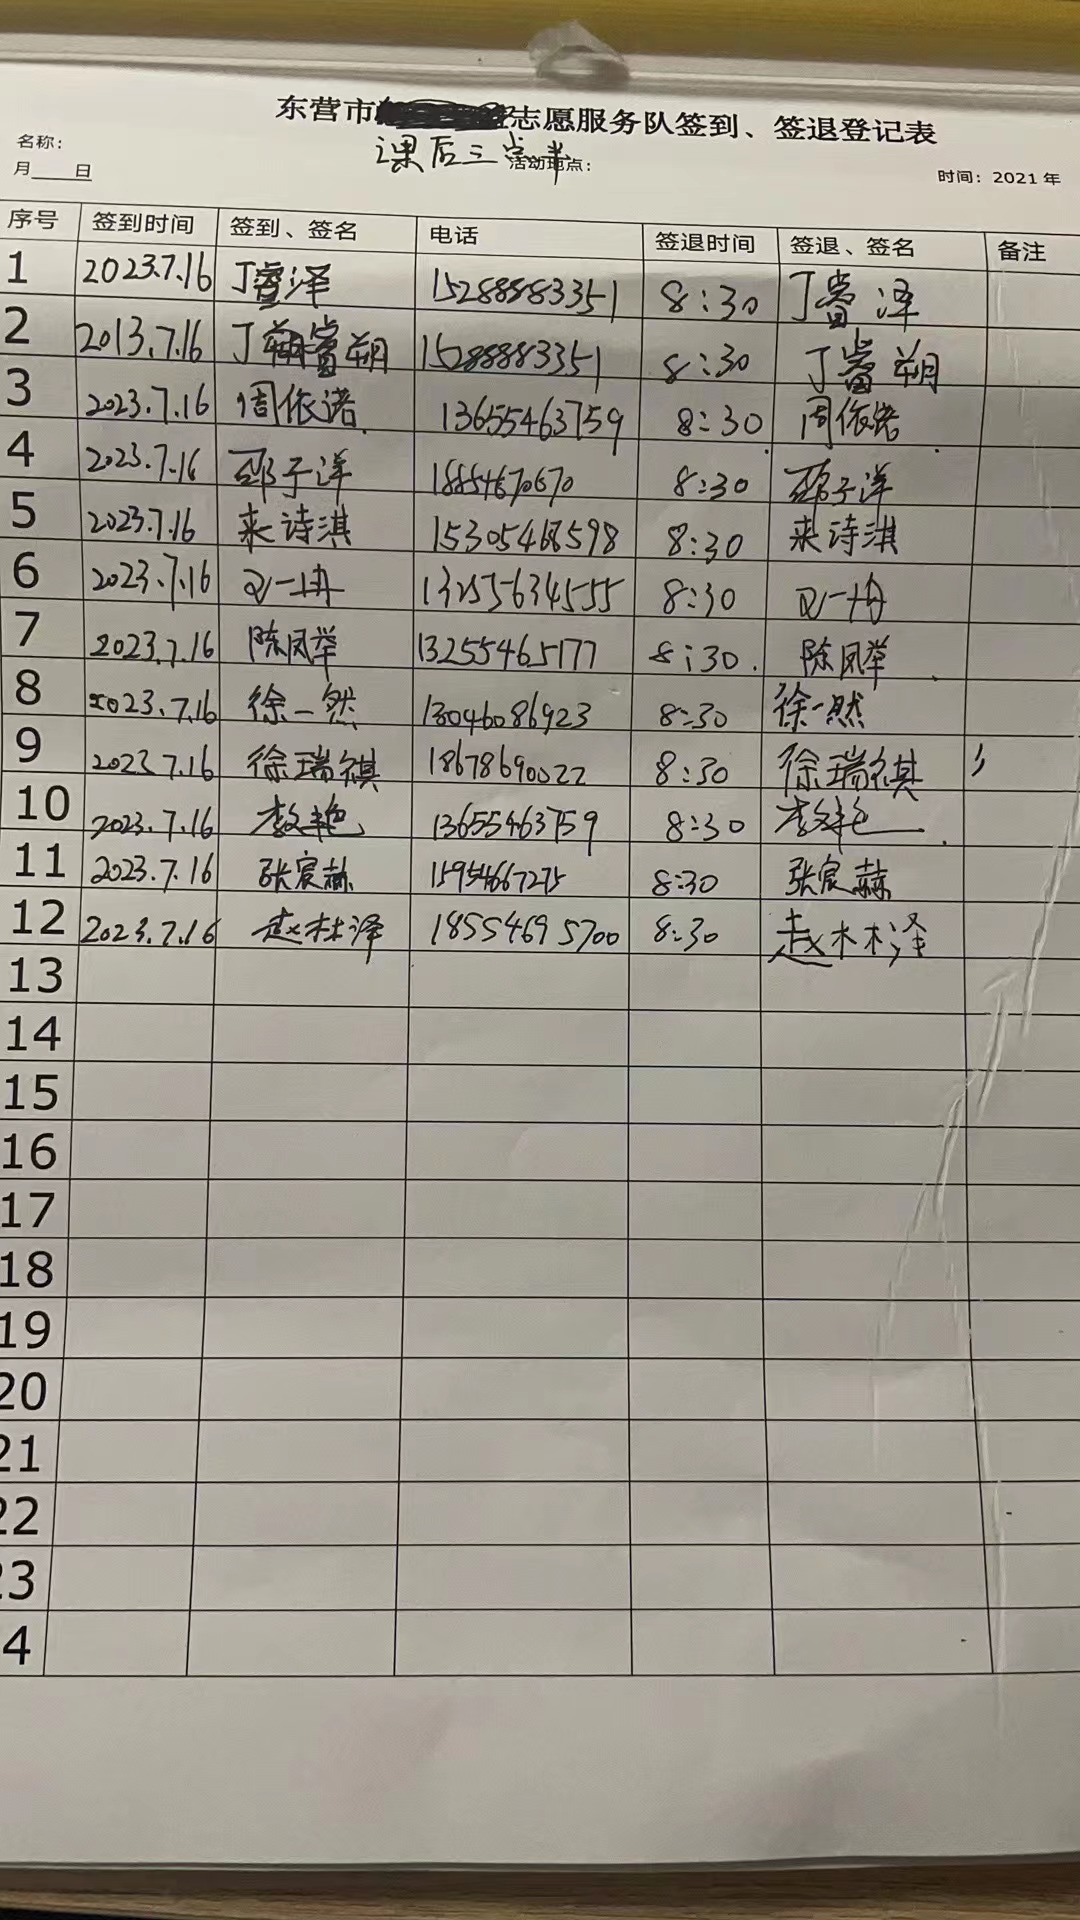 东营市志愿服务队签到、签退登记表
课后三点半
名称： 活动地点：
月 日 时间：2021 年
序号 签到时间 签到、签名 电话 签退时间 签退、签名 备注
1 2023.7.16 丁睿泽 15288883351 8:30 丁睿泽
2 2013.7.16 丁睿朔 1528883351 8:30 丁睿朔
3 2023.7.16 周依诺 13655463759 8:30 周依诺
4 2023.7.16 邵子洋 8:30 邵子洋
5 2023.7.16 来诗淇 8:30 来诗淇
6 2023.7.16 8:30
7 2023.7.16 陈凤举 13255465177 8:30 陈凤举
8 2023.7.16 徐一然 13046086923 8:30 徐一然
9 2023.7.16 徐瑞祺 18678690022 8:30 徐瑞祺
10 2023.7.16 13655463759 8:30
11 2023.7.16 张宸赫 15954667275 8:30 张宸赫
12 2023.7.16 赵林泽 18554695700 8:30 赵林泽
13
14
15
16
17
18
19
20
21
22
23
4